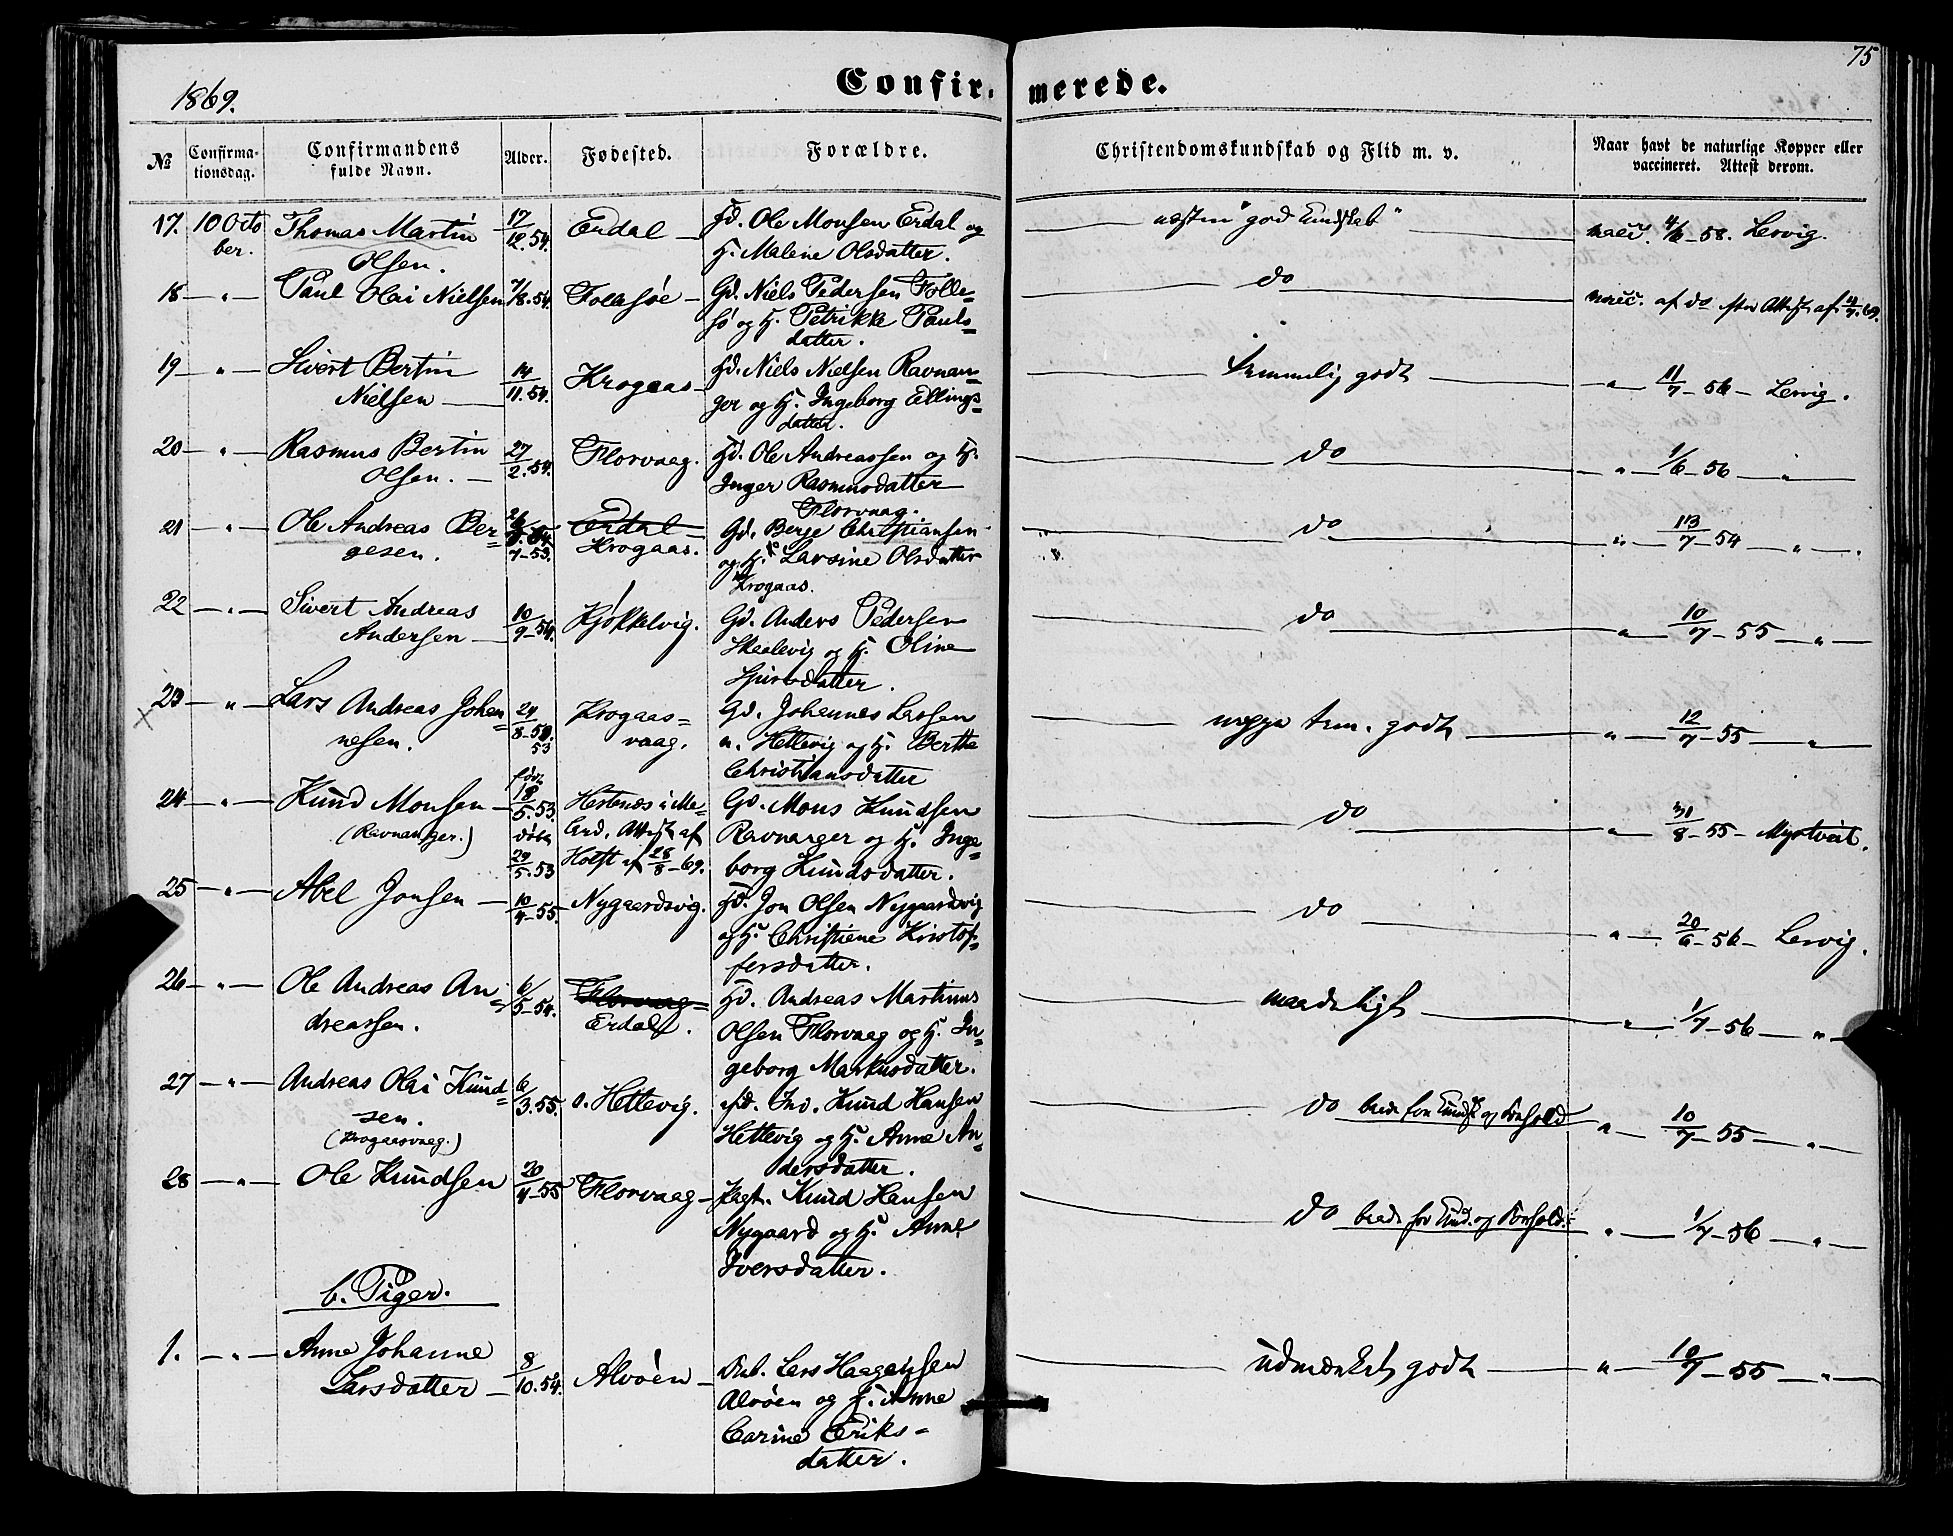 75
1869.
Confirmerede.
№
Confirmationsdag.
Confirmandens fulde Navn.
Alder.
Fødested.
Forældre.
Christendomskundskab og Flid m. v.
Naar havt de naturlige Kopper eller vaccineret. Attest derom.
17. 10 Octo Thomas Martin 17 Erdal — Fd. Ole Monsen Erdal og — næsten "god Kundskab" — vacc. 4/6 – 58. Lervig.
ber. Olsen. 12. 54. H. Malene Olsdatter.
18 — " — Paul Olai Nielsen 7/8. 54. Follesøe — Gd. Niels Pedersen Folle= — do — vacc. af do efter Attest af 4/7. 69.
sø og H. Petrikke Pauls=
datter.
19 — " — Sivert Bertin 14 Krogaas — Hd. Niels Nielsen Ravnan= — temmelig godt — " — 11/7 – 56 – Lervig.
Nielsen — 11. 54. ger og H. Ingeborg Ellings=
datter.
20 — " — Rasmus Bertin 27 Florvaag. Hd. Ole Andreassen og H. — do — " — 1/6 – 56 — "
Olsen. — 2. 54. Inger Rasmusdatter
Florvaag.
21 — " — Ole Andreas Ber= 26 Erdal Gd. Berge Christiansen — do — " — 13/7 – 54 — " —.
gesen. 7–53. Krogaas. og H. Larsine Olsdatter
Krogaas.
22 — " — Sivert Andreas 10 Kjøkkelvig. Gd. Anders Pedersen — do — " — 10/7 – 55 — " —
Andersen — 9–54. Skaalevig og H. Oline
Sjursdatter.
23 — " — Lars Andreas Johan= 24 Krogaas= Gd. Johannes Larsen — neppe tem. godt — " — 12/7 – 55 — "
x nesen. 8– 53 vaag. n. Hettevig og H. Berthe
Christiansdatter
24 — " — Knud Monsen — fød. 18 Hestenæs i Me= Gd. Mons Knudsen — do — " — 31/8 – 55 – Myrtveit.
(Ravnanger.) 5. 53. døbt land. Attest af Ravnanger og H. Inge=
29/5. 53 Holst af 28/8 – 69. borg Knudsdatter.
25 — " — Abel Jonsen — 10/4–55. Nygaardsvig. Fd. Jon Olsen Nygaardsvig — do — " — 20/6 – 56 – Lervig.
og H. Christiene Kristof=
fersdatter.
26 — " — Ole Andreas An= 6/5–54. Florvaag Hd. Andreas Martinus — maadeligt — " — 1/7 – 56 — " —
dreassen. Erdal. Olsen Florvaag og H. In=
geborg Markusdatter.
27 — " — Andreas Olai Knud= 6/3. 55. Hettevig. Ind. Knud Hansen — do bedre for Kundsk. og Forhold " — 10/7 – 55 — " —
sen. Hettevig og H. Anne An=
(Krogaasvaag.) dersdatter.
28 — " — Ole Knudsen 20/4–55 Florvaag — Pagt. Knud Hansen — do bedre for Kund. og Forhold. " — 1/7 – 56 — " —
Nygaard og H. Anne
Iversdatter.
b. Piger.
1. — " — Anne Johanne 8 Alvøen — Lars Haagensen — udmærket godt — " — 10/7 – 55 — " —
Larsdatter — 10. 54. Alvøen og H. Anne
Carine Eriks=
datter.